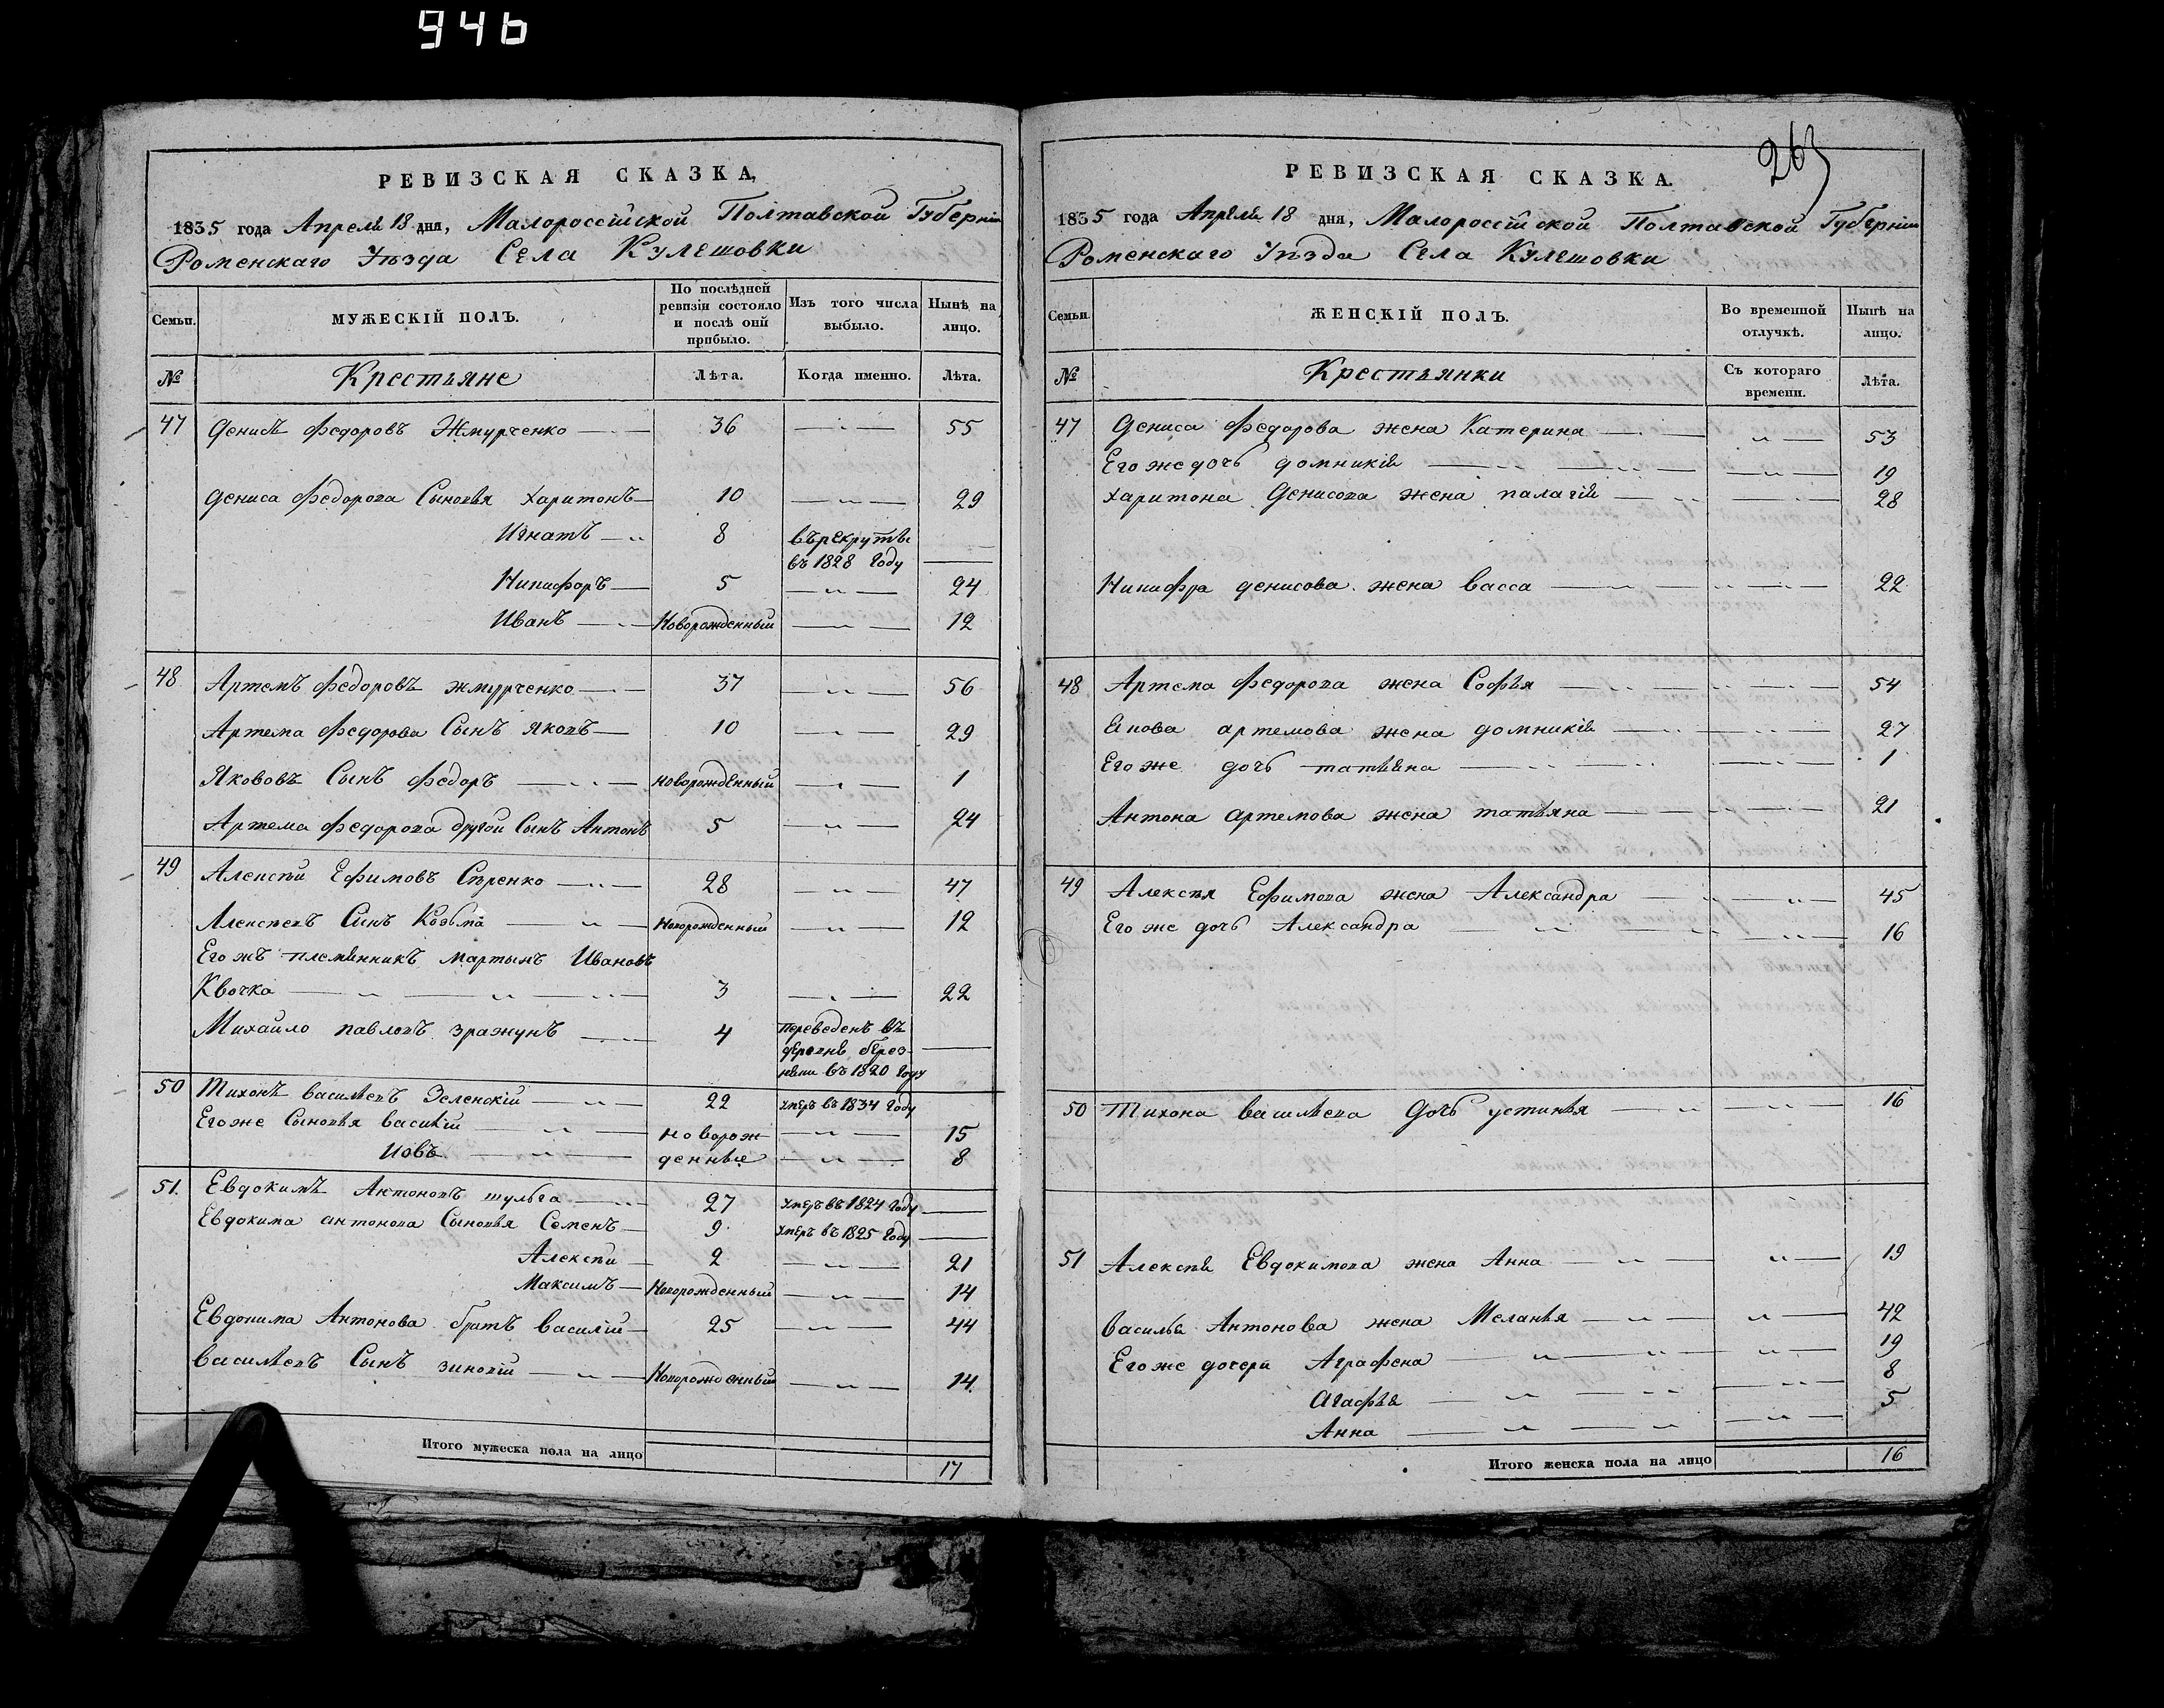 946
РЕВИЗСКАЯ СКАЗКА,
1835 года Апреля 18 дня, Малороссійской Полтавской Губерніи
Роменскаго Уѣзда Села Кулешовки
Семьи.
МУЖЕСКІЙ ПОЛЪ.
По послѣдней ревизіи состояло и послѣ оий прибыло.
Изъ того числа выбыло.
Нынѣ на лицо.
№ Крестьяне Лѣта. Когда именно. Лѣта.
47 Денисъ Федоровъ Жмурченко 36 55
Дениса Федорова Сыновья Харитонъ 10 29
Игнатъ 8 въ рекруты
въ 1828 Году
Никифоръ 5 24
Иванъ Новорожденный 12
48 Артемъ Федоровъ Жмурченко 37 56
Артема Федорова Сынъ Яковъ 10 29
Яововъ Сынъ Федоръ новорожденный 1
Артема Федорова другой Сынъ Антонъ 5 24
49 Алексѣй Ефимовъ Сѣренко 28 47
Алексѣевъ Сынъ Козьма Новорожденный 12
Его жъ племянникъ Мартынъ Ивановъ
Квочка 3 22
Михайло Павловъ Зражунъ 4 Переведенъ въ
деревню берез-
няки въ 1820 Году
50 Тихонъ Васильевъ Зеленскій 22 умеръ въ 1834 Году
Его же Сыновья Василій новорож- 15
Иовъ денные 8
51. Евдокимъ Антоновъ Шульга 27 умеръ въ 1824 Году
Евдокима Антонова Сыновья Семенъ 9 умеръ въ 1825 Году
Алексѣй 2 21
Максимъ Новорожденный 14
Евдокима Антонова братъ Василій 25 44
Васильевъ Сынъ Зиновій Новорожденный 14
Итого мужеска пола на лицо 17
263
РЕВИЗСКАЯ СКАЗКА.
1835 года Апреля 18 дня, Малороссійской Полтавской Губерніи
Роменскаго Уѣзда Села Кулешовки
Семьи.
ЖЕНСКІЙ ПОЛЪ.
Во временной отлучкѣ.
Нынѣ на лицо.
№ Крестьянки Съ котораго времени. Лѣта.
47 Дениса Федорова жена Катерина 53
Его же дочь Домникія 19
Харитона Денисова жена Палагія 28
Никифра Денисова жена Васса 22
48 Артема Федорова жена Софья 54
Якова Артемова жена Домникія 27
Его же дочь Татьяна 1
Антона Артемова жена Татьяна 21
49 Алексѣя Ефимова жена Александра 45
Его же дочь Александра 16
50 Тихона Васильева Дочь Устинья 16
51 Алексѣя Евдокимова жена Анна 19
Василья Антонова жена Меланья 42
Его же дочери Аграфена 19
Агафья 8
Анна 5
Итого женска пола на лицо 16